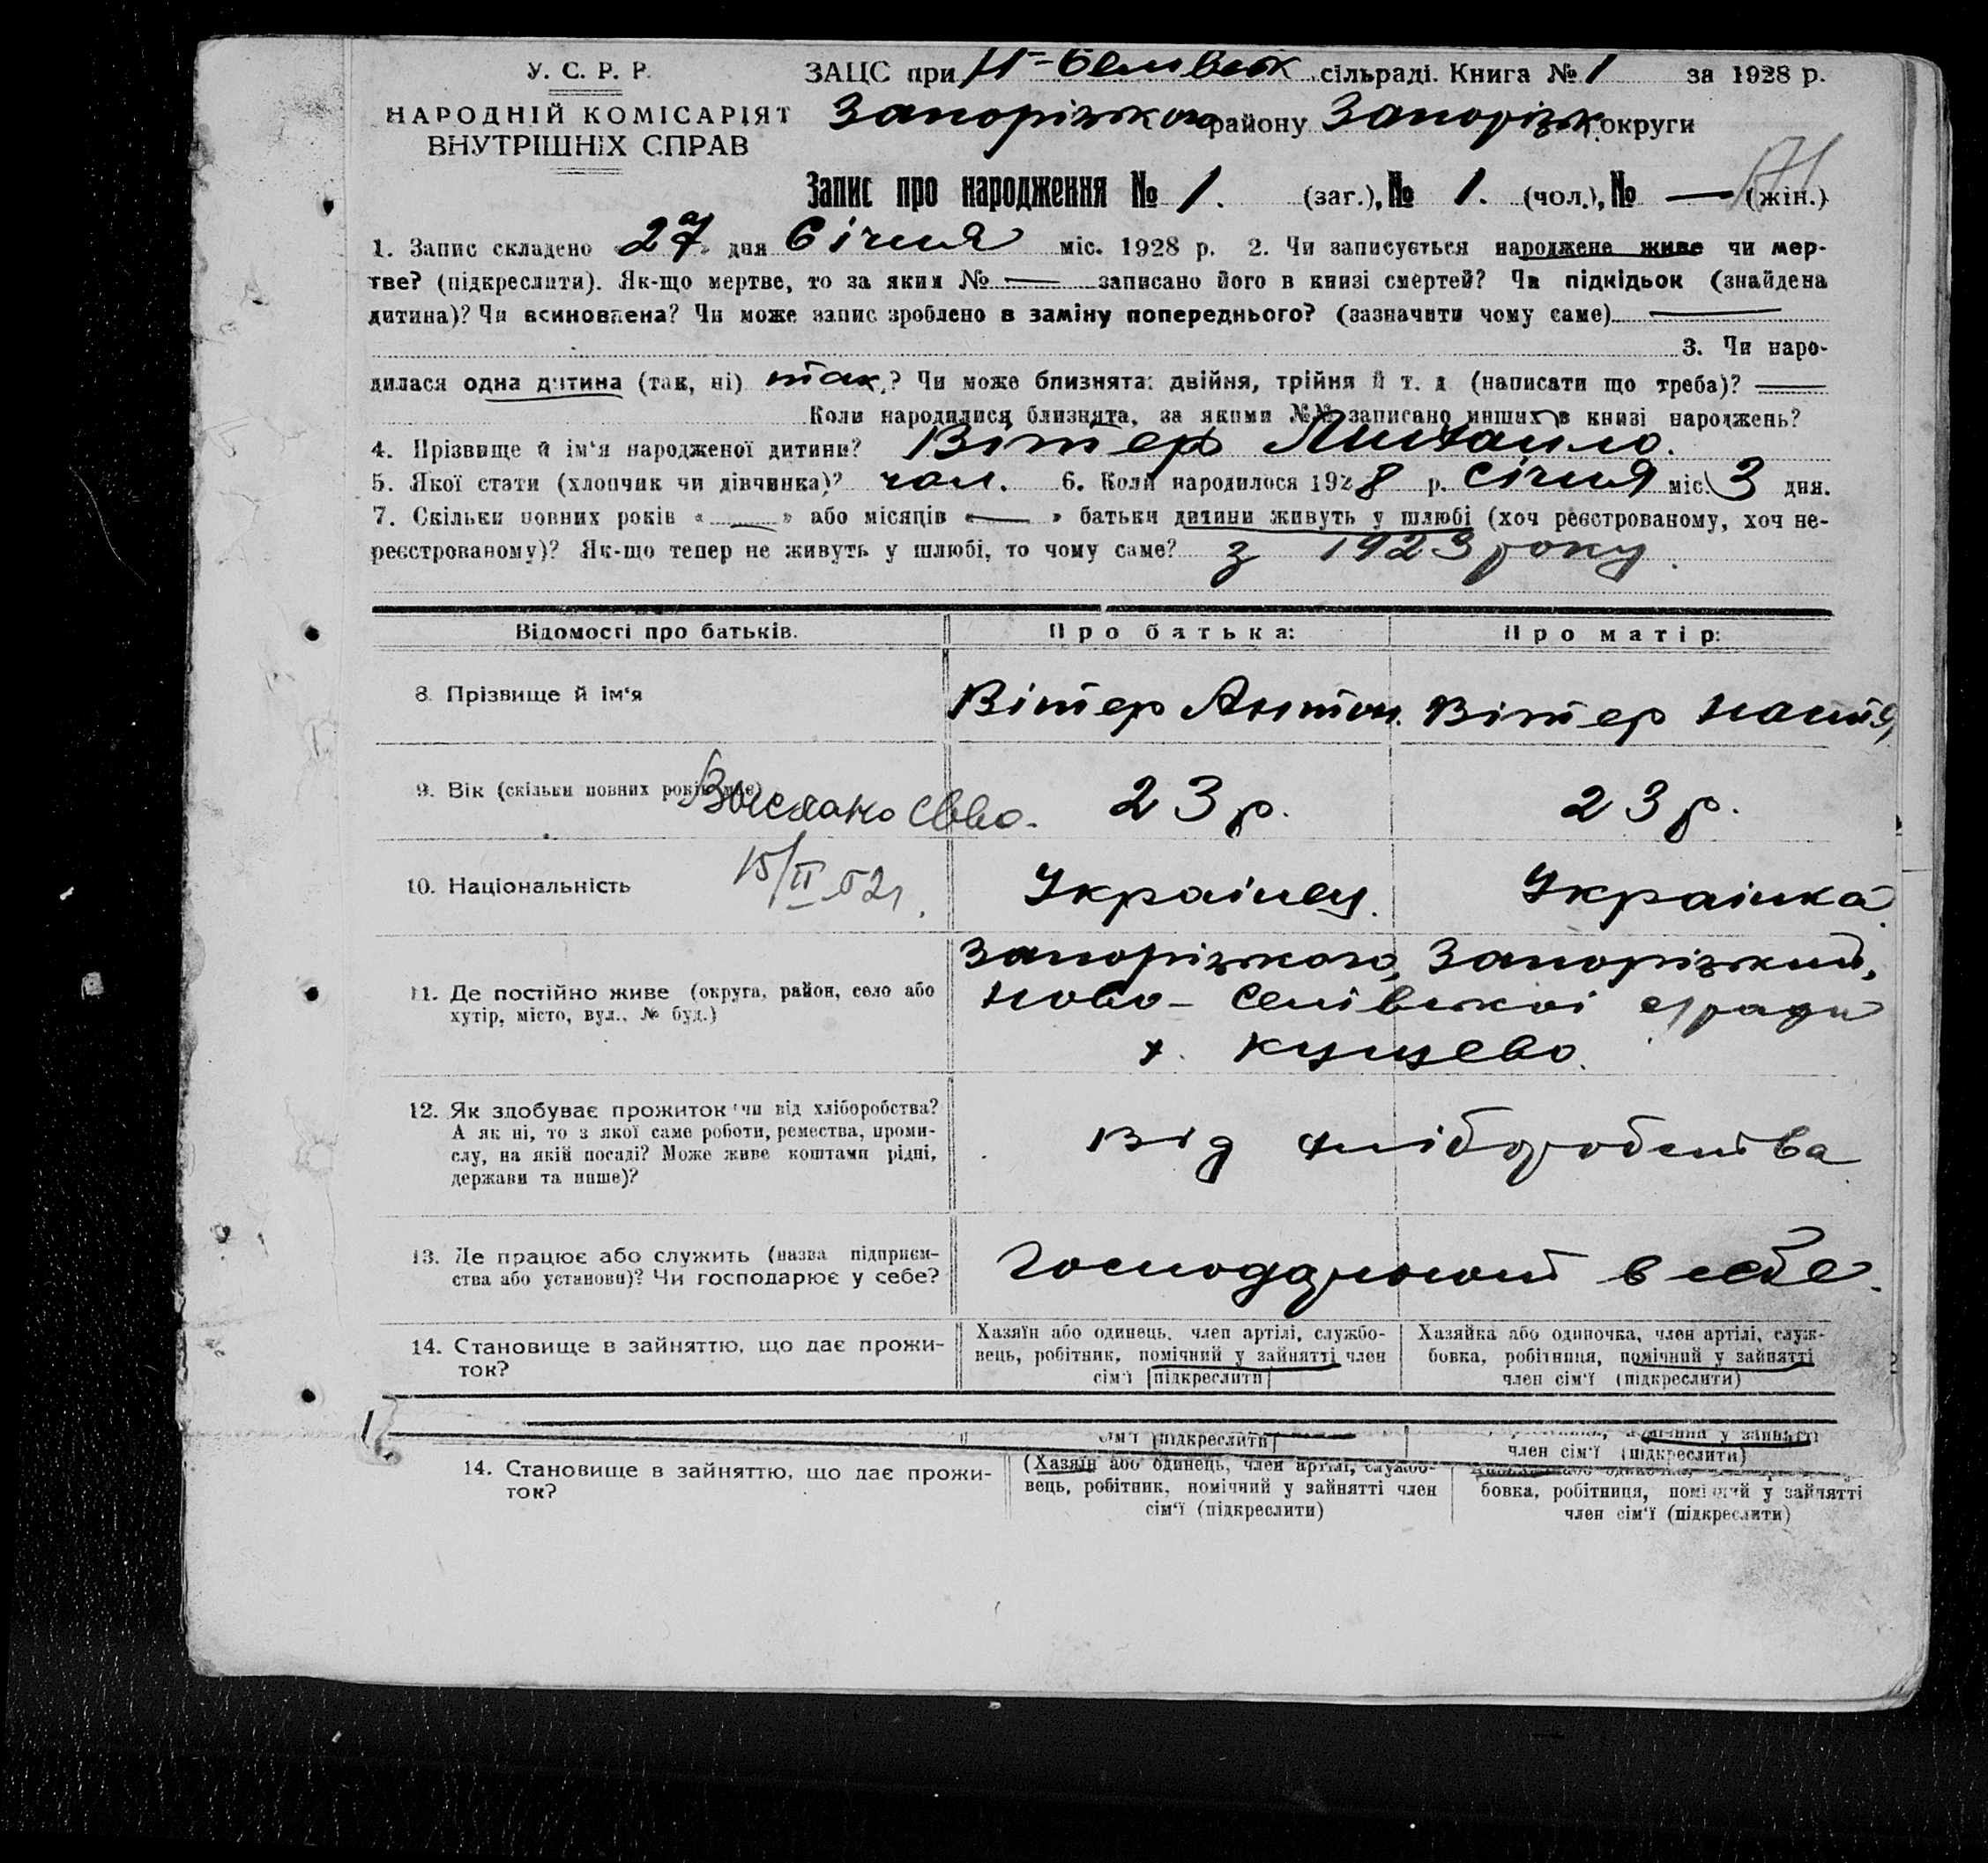 У. С. Р. Р.
НАРОДНІЙ КОМІСАРІЯТ
ВНУТРІШНІХ СПРАВ
ЗАЦС при сільраді. Книга № 1 за 1928 р.
Запорізького району Запорізьк. округи
Запис про народження № 1. (заг.), № 1. (чол.), № — (жін.)
1. Запис складено «27» дня Січня міс. 1928 р. 2. Чи записується народжене живе чи мер-
тве? (підкреслити). Як-що мертве, то за яким № — записано його в книзі смертей? Чи підкідьок (знайдена
дитина)? Чи всиновлена? Чи може запис зроблено в заміну попереднього? (зазначити чому саме) —
3. Чи наро-
дилася одна дитина (так, ні) так? Чи може близнята: двійня, трійня й т. д (написати що треба)? —
Коли народилися близнята, за якими №№ записано инших в книзі народжень?
4. Прізвище й ім'я народженої дитини? Вітер Михайло.
5. Якої стати (хлопчик чи дівчинка)? чол. 6. Коли народилося 1928 р. Січня міс. 3 дня.
7. Скільки повних років «—» або місяців «—» батьки дитини живуть у шлюбі (хоч реєстрованому, хоч не-
реєстрованому)? Як-що тепер не живуть у шлюбі, то чому саме? з 1923 року.
Відомості про батьків. Про батька: Про матір:
8. Прізвище й ім'я Вітер Антон. Вітер Настя
9. Вік (скільки повних років має) 23 р. 23 р.
Выслано св-во.
15/II 52 г.
10. Національність Українец. Українка
11. Де постійно живе (округа, район, село або
хутір, місто, вул., № буд.)
Запорізького, Запорізький,
Ново- с/ради
х. Куцево.
12. Як здобуває прожиток чи від хліборобства?
А як ні, то з якої саме роботи, ремества, проми-
слу, на якій посаді? Може живе коштами рідні,
держави та инше)?
Від хліборобства
13. Де працює або служить (назва підприєм-
ства або установи)? Чи господарює у себе?
Господарюют в себе.
14. Становище в зайняттю, що дає прожи-
ток?
Хазяїн або одинець, член артілі, службо-
вець, робітник, помічний у зайнятті член
сім'ї (підкреслити)
Хазяйка або одиночка, член артілі, служ-
бовка, робітниця, помічний у зайнятті
член сім'ї (підкреслити)
сім'ї (підкреслити)
помічний у зайнятті
член сім'ї (підкреслити)
14. Становище в зайняттю, що дає прожи-
ток?
(Хазяїн або одинець, член артілі, службо-
вець, робітник, помічний у зайнятті член
сім'ї (підкреслити)
бовка, робітниця, помічний у зайнятті
член сім'ї (підкреслити)